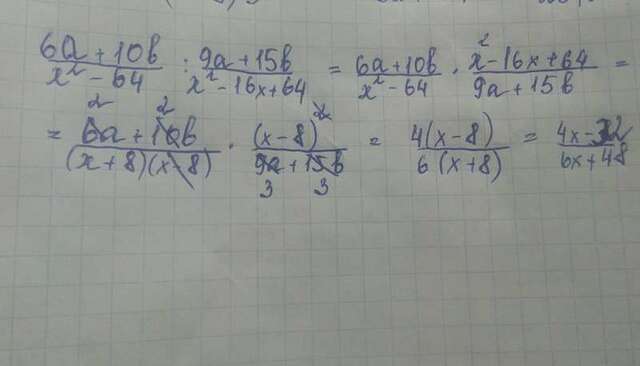 6a+10b/x²-64 : 9a+15b/x²-16x+64 = 6a+10b/x²-64 · x²-16x+64/9a+15b =
= 6a+10b/(x+8)(x-8) · (x-8)²/9a+15b = 4(x-8)/6(x+8) = 4x-32/6x+48
2 2
3 3